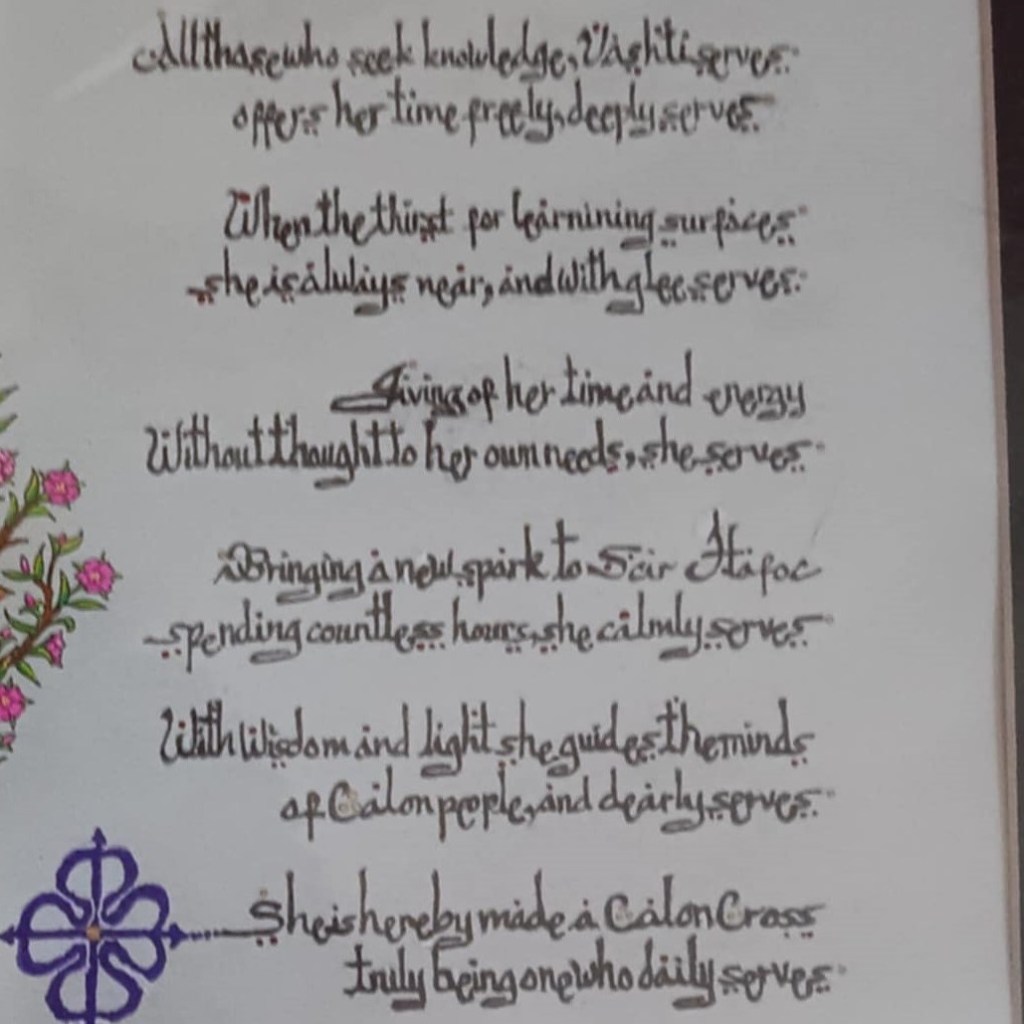 All those who seek knowledge, Vashti serves
offers her time freely, deeply serves
When the thirst for learnining surfaces
she is always near, and with glee serves
Giving of her time and energy
Without thought to her own needs, she serves
Bringing a new spark to Scir Hafoc
spending countless hours, she calmly serves
With Wisdom and light she guides the minds
of Calon people, and dearly serves
She is hereby made a Calon Cross
truly being one who daily serves